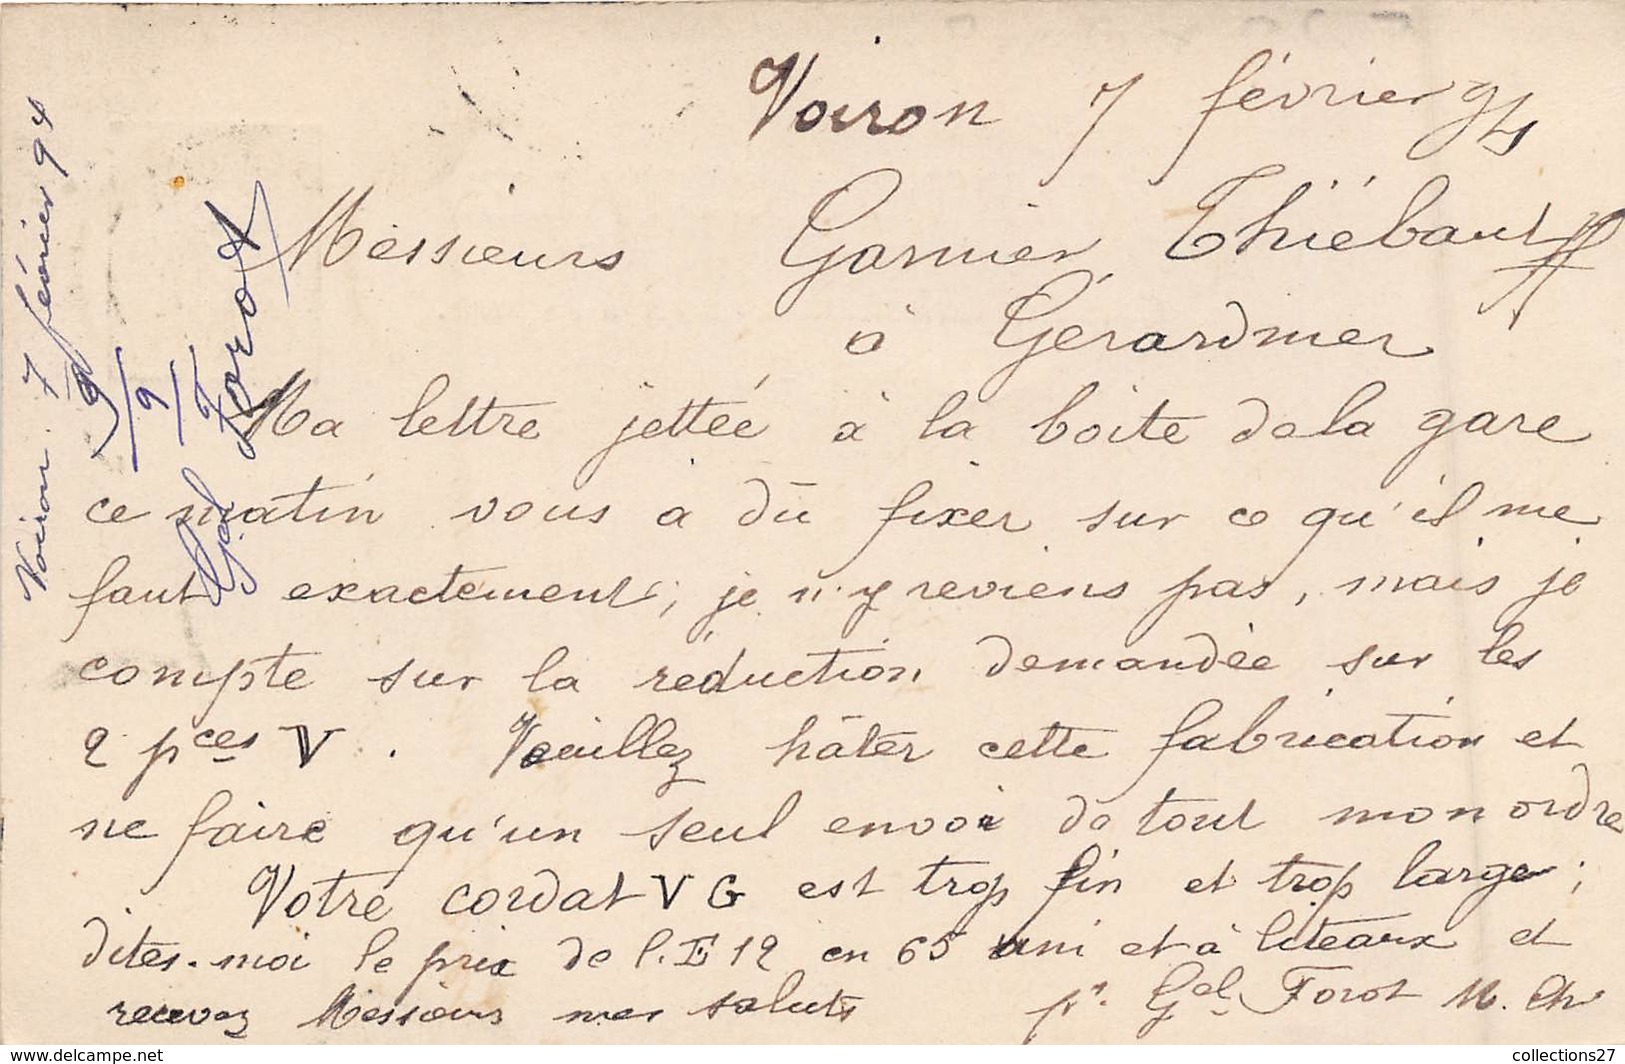 Voiron 7 février 94
Messieurs Garnier, Thiébaut
à Gérardmer
Ma lettre jettée à la boite de la gare
ce matin vous a dû fixer sur ce qu'il me
faut exactement; je n'y reviens pas, mais je
compte sur la réduction demandée sur les
2 pces V. Veuillez hâter cette fabrication et
ne faire qu'un seul envoi de tout mon ordre
Votre cordat V G est trop fin et trop large;
dites-moi le prix de l. E 12 en 65 uni et à liteaux et
recevez Messieurs mes saluts pr. Gel Forot M. Ch
Voiron 7 février 94
9/9
Gel Forot
collections27